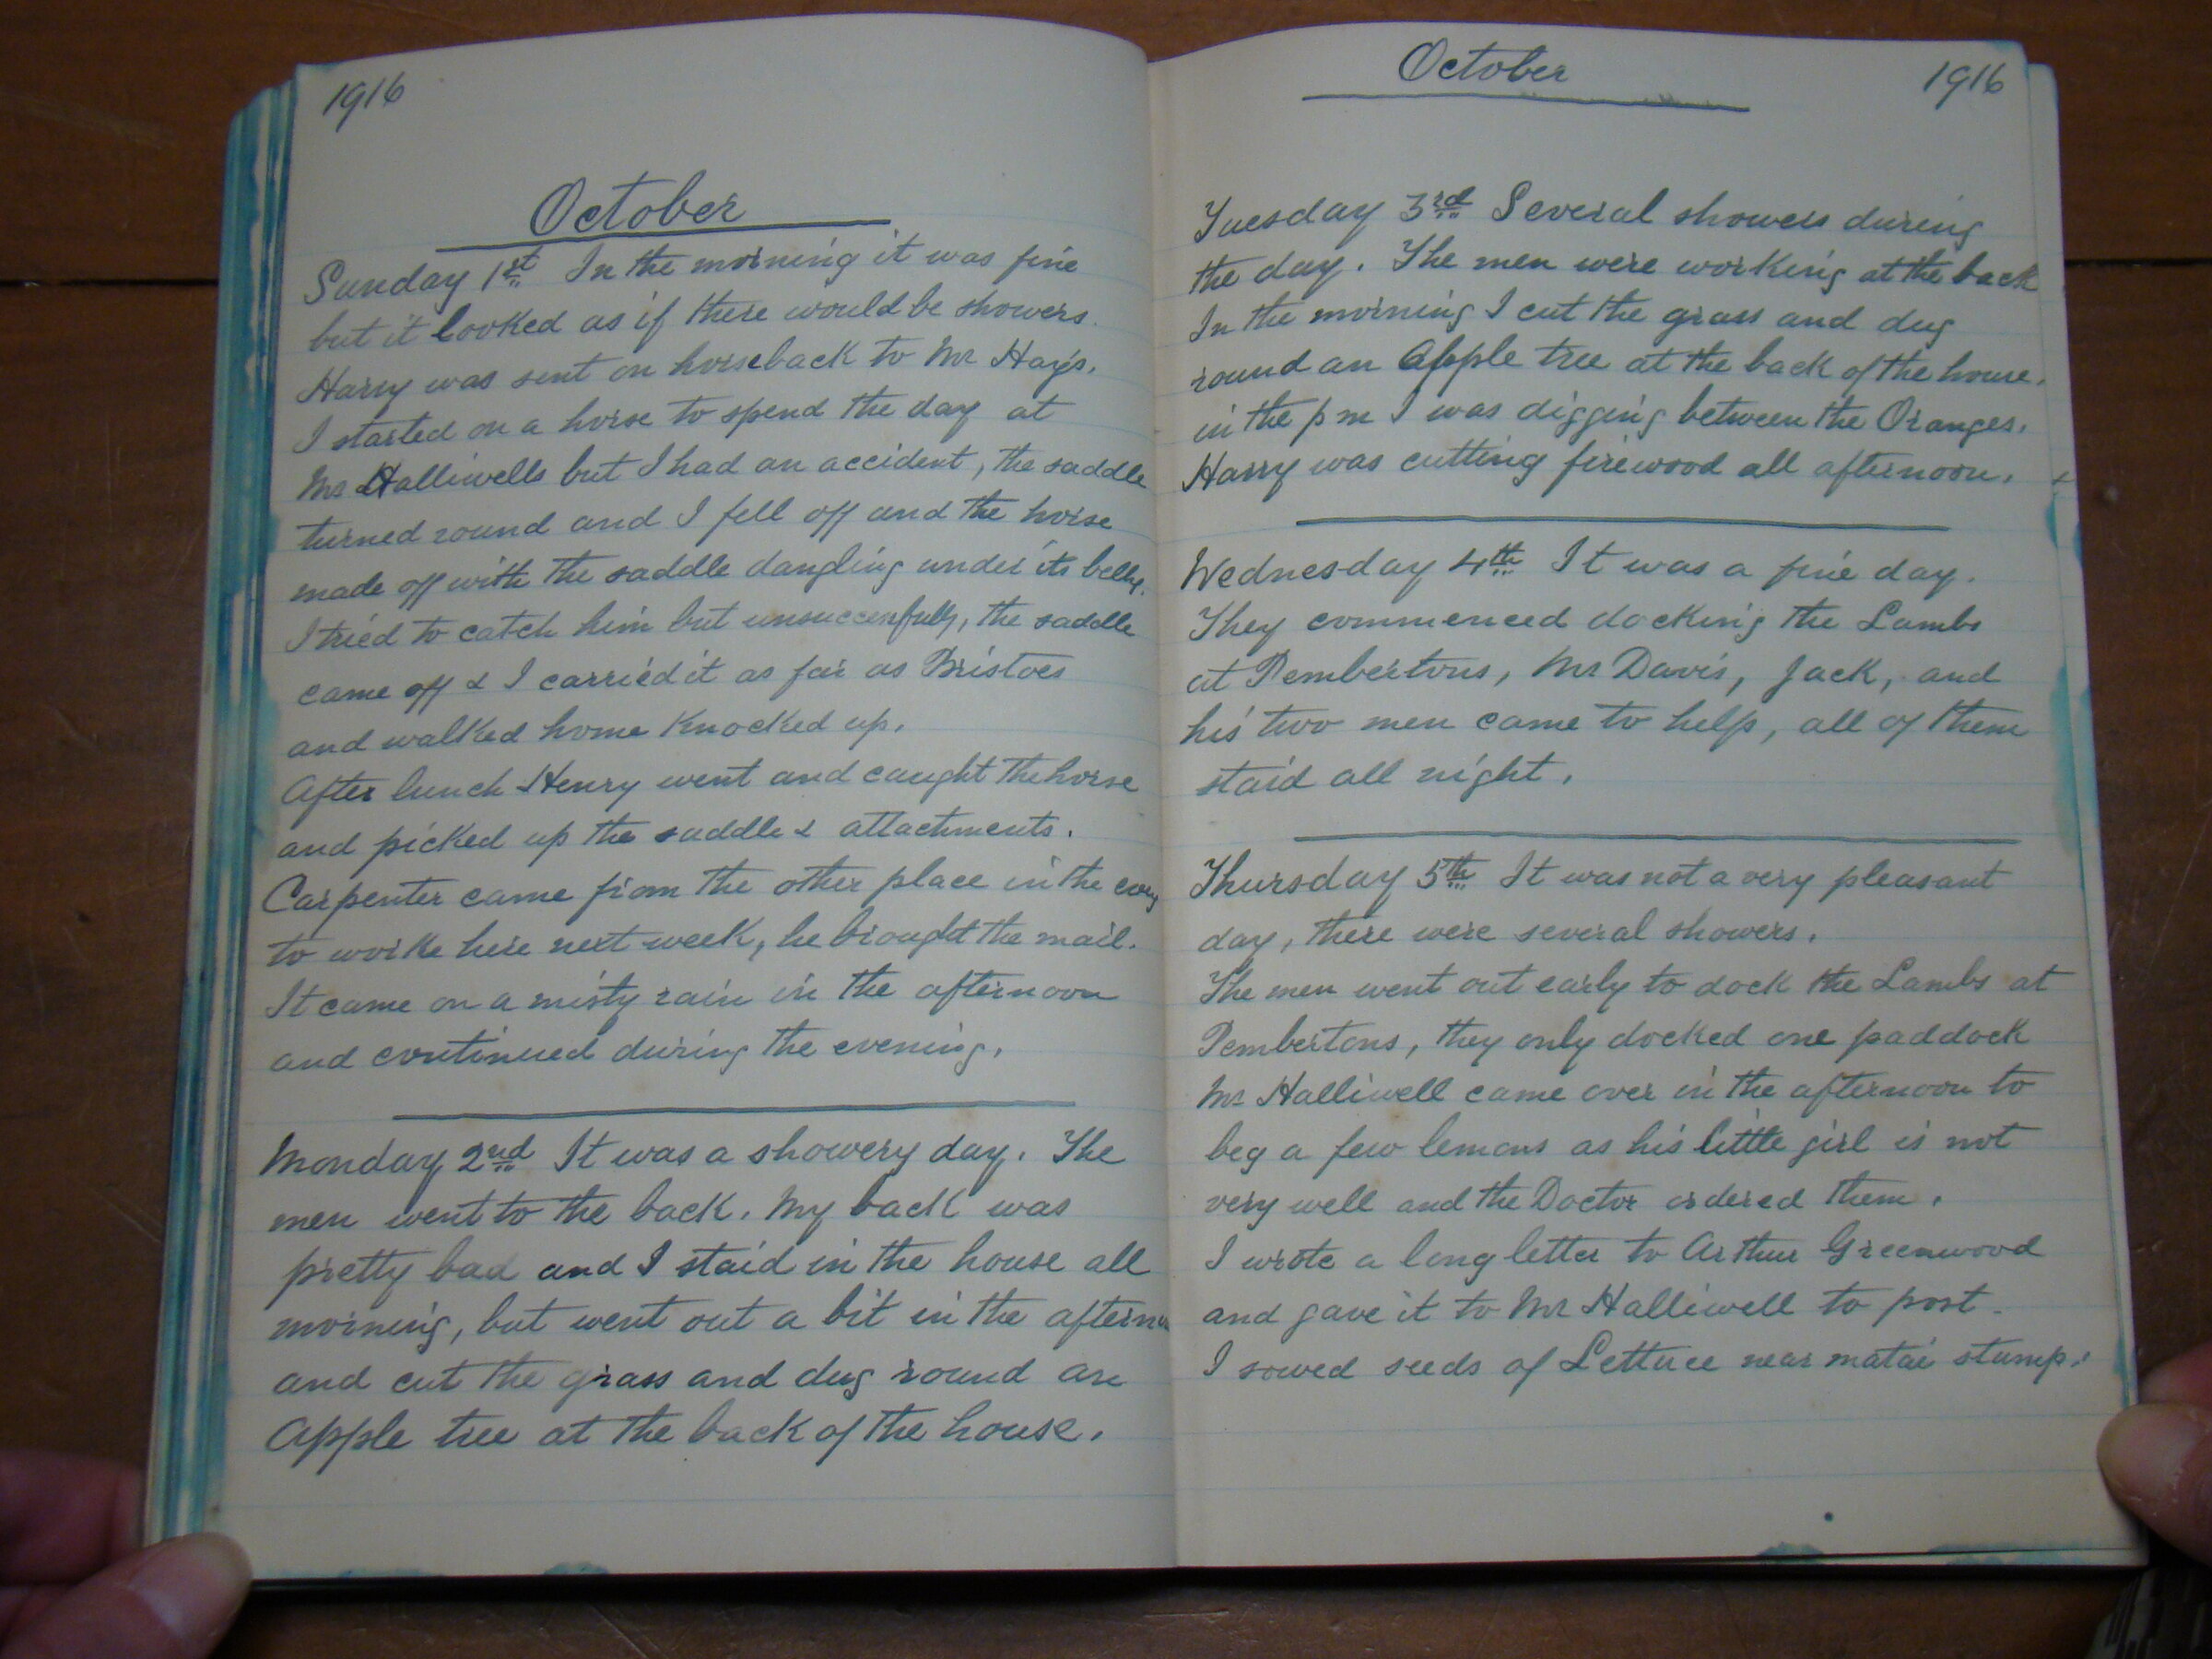 1916
October
Sunday 1st In the morning it was fine
but it looked as if there would be showers.
Harry was sent on horseback to Mr Hay's.
I started on a horse to spend the day at
Mr Halliwells but I had an accident, the saddle
turned round and I fell off and the horse
made off with the saddle dangling under its belly.
I tried to catch him but unsuccessfully, the saddle
came off & I carried it as far as Bristoes
and walked home knocked up.
After lunch Henry went and caught the horse
and picked up the saddle & attachments.
Carpenter came from the other place in the
to worke here next week, he brought the mail.
It came on a misty rain in the afternoon
and continued during the evening.
Monday 2nd It was a showery day. The
men went to the back. My back was
pretty bad and I staid in the house all
morning, but went out a bit in the
and cut the grass and dug round an
Apple tree at the back of the house.
October
1916
Tuesday 3rd Several showers during
the day. The men were working at the back
In the morning I cut the grass and dug
round an Apple tree at the back of the house.
in the pm I was digging between the Oranges.
Harry was cutting firewood all afternoon.
Wednesday 4th It was a fine day.
They commenced docking the Lambs
at Pembertons, Mr Davis, Jack, and
his two men came to help, all of them
staid all night.
Thursday 5th It was not a very pleasant
day, there were several showers.
The men went out early to dock the Lambs at
Pembertons, they only docked one paddock
Mr Halliwell came over in the afternoon to
beg a few lemons as his little girl is not
very well and the Doctor ordered them.
I wrote a long letter to Arthur Greenwood
and gave it to Mr Halliwell to post.
I sowed seeds of Lettuce near matai stump.